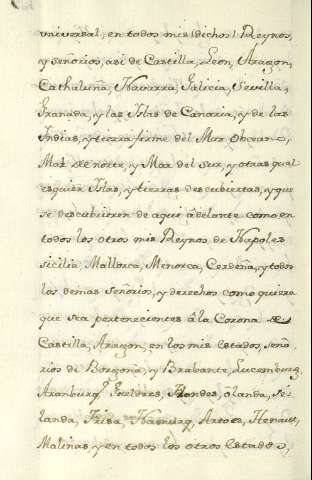 universal, en todos mis (dichos) Reynos,
y señorios, asi de Castilla, Leon, Aragon,
Cathaluña, Navarra, Galicia, Sevilla,
Granada, y las Islas de Canaria, y de las
Indias, y tierra firme del Mar Occeano,
Mar del norte, y Mar del Sur, y otras qual
esquier Islas, y tierras descubiertas, y que
se descubrieren de aqui adelante como en
todos los otros mis Reynos de Napoles
sicilia, Mallorca, Menorca, Cerdeña, y todos
los demas Señorios, y derechos como quiera
que sea pertenecientes â la Corona de
Castilla, Aragon, en los mis estados, seño
rios de Borgoña, y Brabante, Lucemburg,
Gueldres, Flandes, ôlanda, Se
landa, Frisa, Artoes, Henaut,
Malinas y en todos los otros Estados,